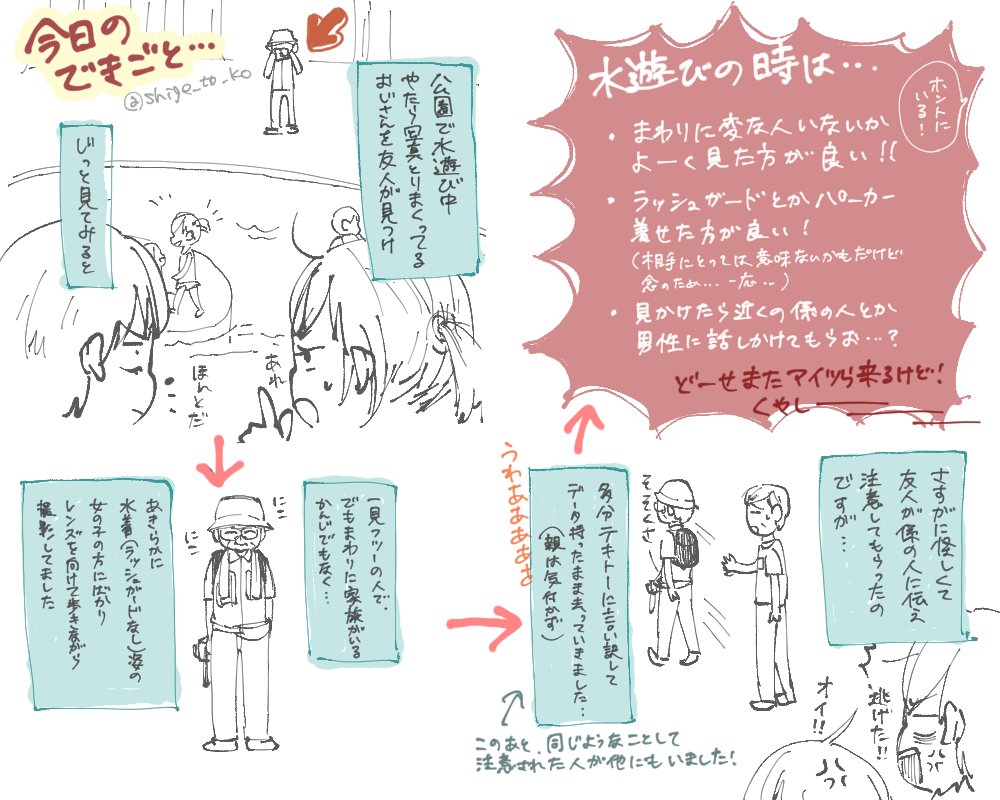 今日の
できごと…
@shige_to_ko
公園で水遊び中
やたら写真とりまくってる
おじさんを友人が見つけ
じっと見てみると
あれ
ほんとだ
一見フツーの人で、
でもまわりに家族がいる
かんじでもなく…
にこ
にこ
あきらかに
水着(ラッシュガードなし)姿の
女の子の方にばかり
レンズを向けて歩きながら
撮影してました
さすがに怪しくて
友人が係の人に伝え
注意してもらったの
ですが…
そそくさ
多分テキトーに言い訳して
データ持ったまま去っていきました…
(親は気付かず)
うわあああああ
逃げた!!
オイ!!
このあと、同じようなことして
注意された人が他にもいました!
水遊びの時は…
ホントに
いる!
・まわりに変な人いないか
よーく見た方が良い!!
・ラッシュガードとかパーカー
着せた方が良い!
(相手にとっては意味ないかもだけど
念のため…一応…)
・見かけたら近くの係の人とか
男性に話しかけてもらお…?
どーせまたアイツら来るけど!
くやしー